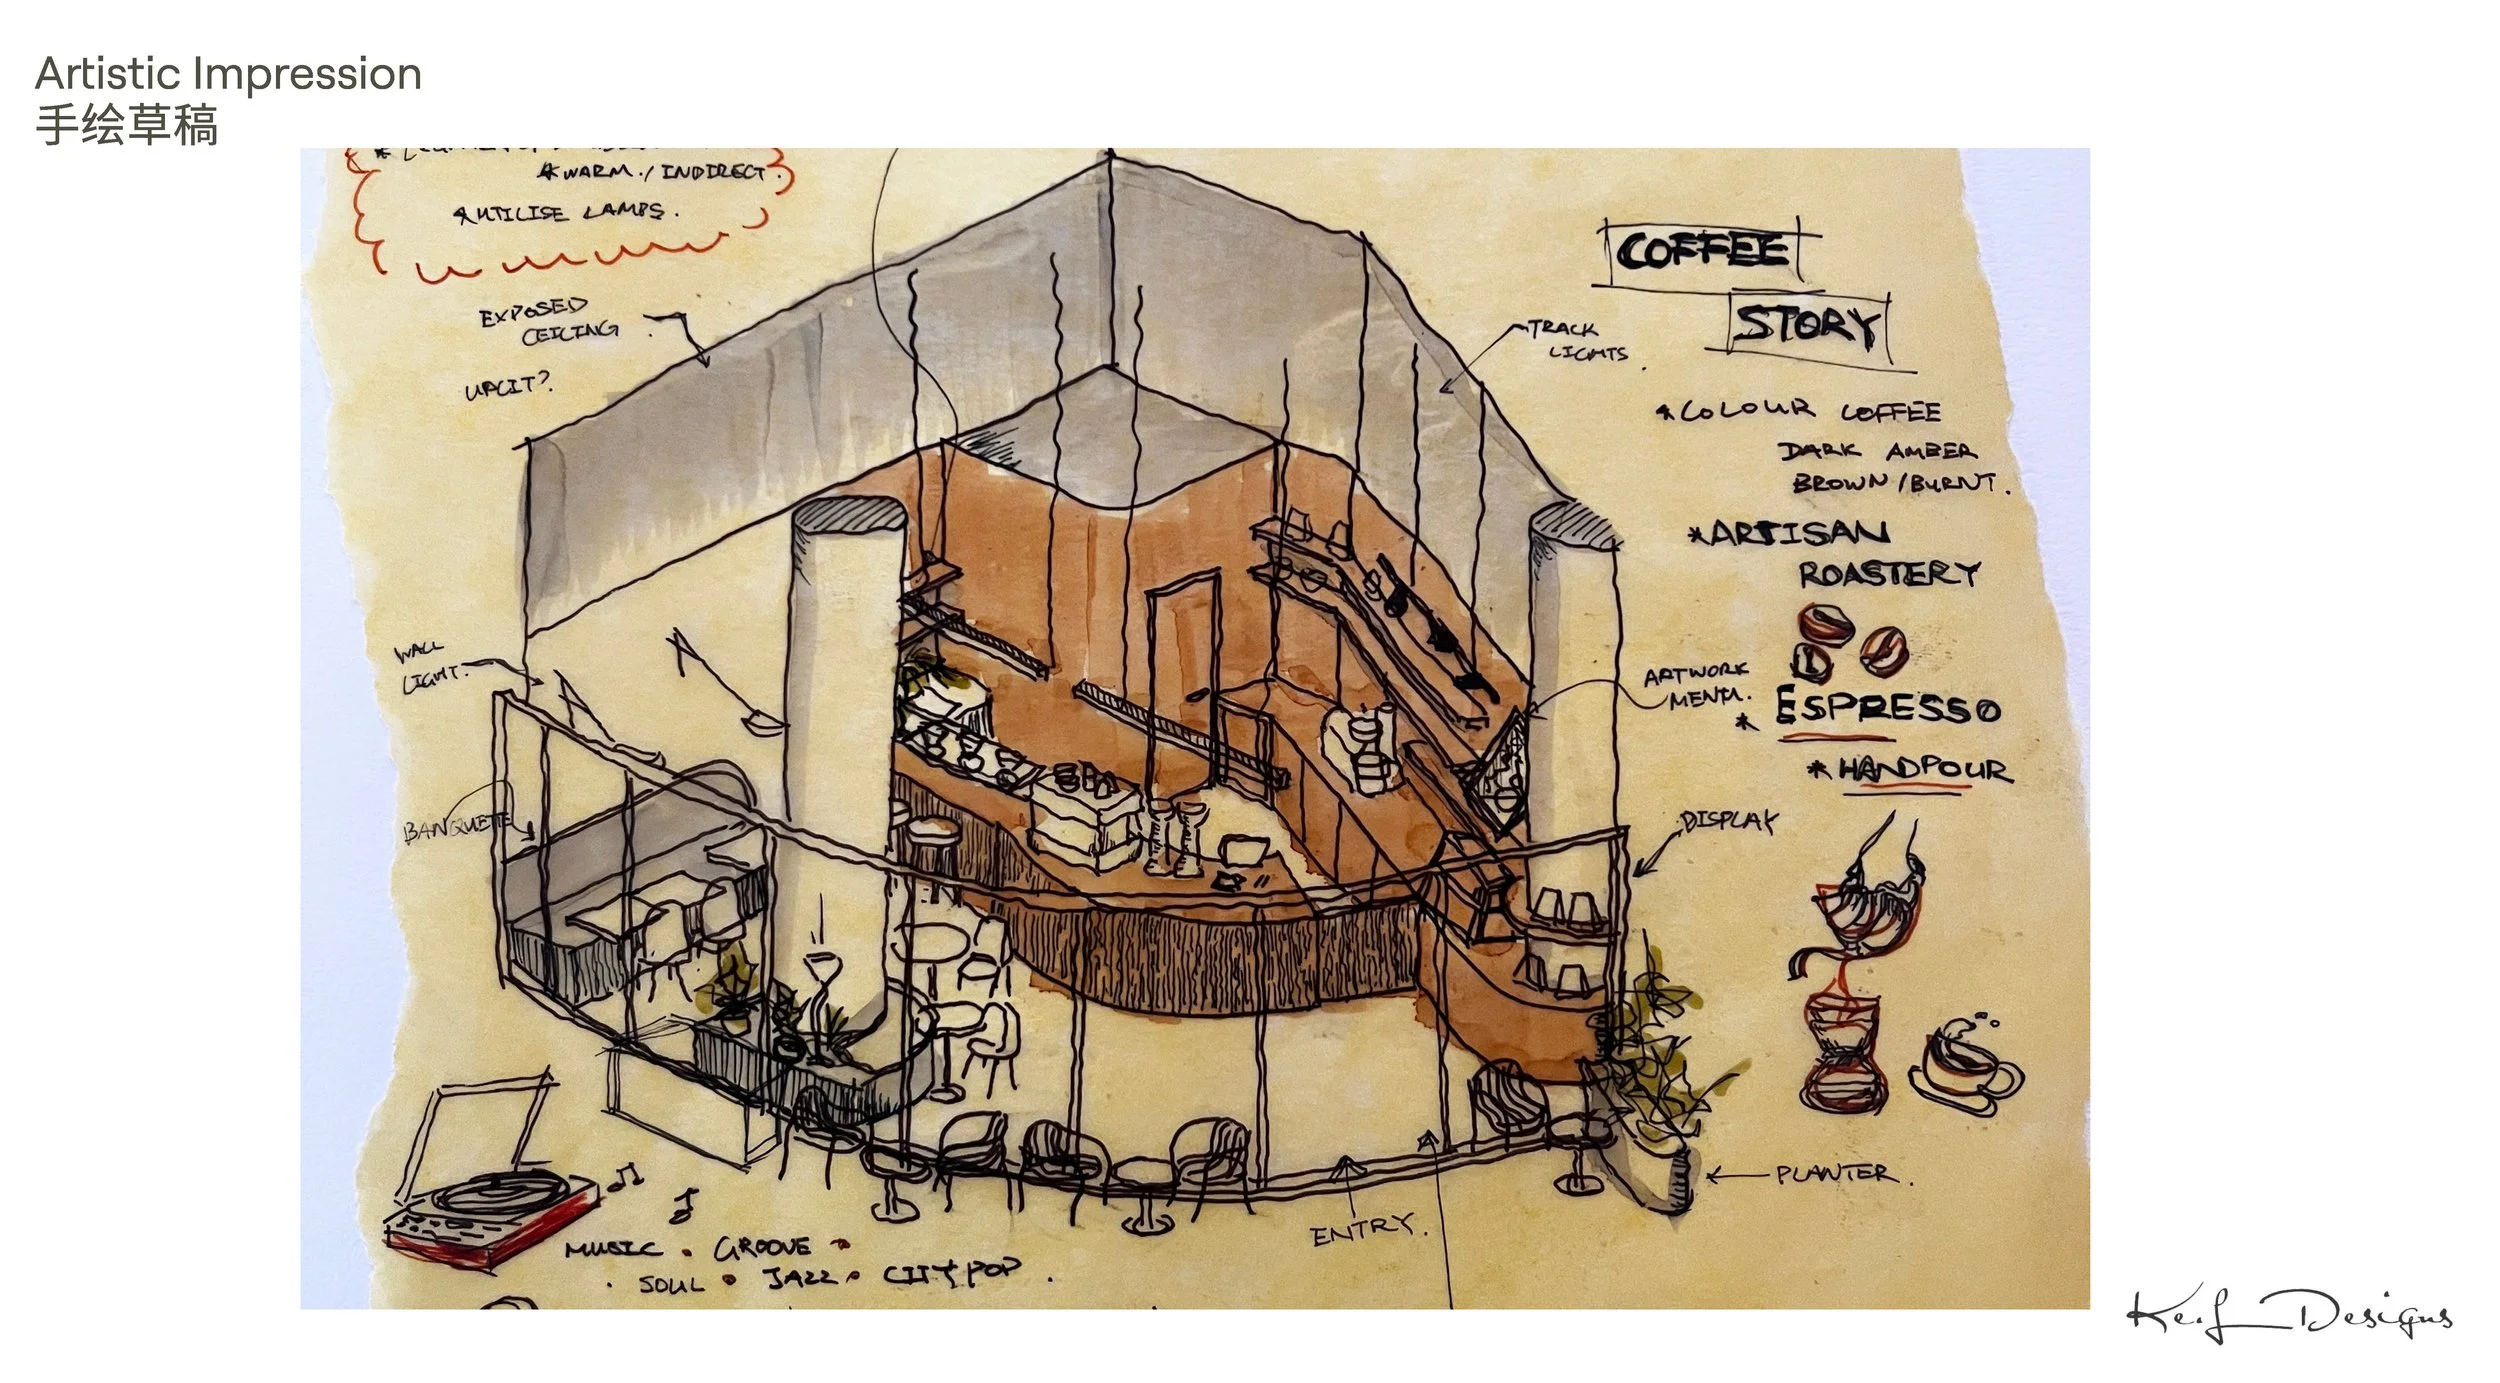 Artistic Impression
手绘草稿
* WARM./INDIRECT.
* UTILISE LAMPS.
EXPOSED
CEILING
UPLIT?
WALL
LIGHT.
BANQUETTE
COFFEE
STORY
TRACK
LIGHTS.
* COLOUR COFFEE
DARK AMBER
BROWN/BURNT.
* ARTISAN
ROASTERY
ARTWORK
MENU.
* ESPRESSO
* HANDPOUR
DISPLAY
PLANTER.
ENTRY.
MUSIC • GROOVE •
• SOUL • JAZZ • CITY POP.
Kef Designs